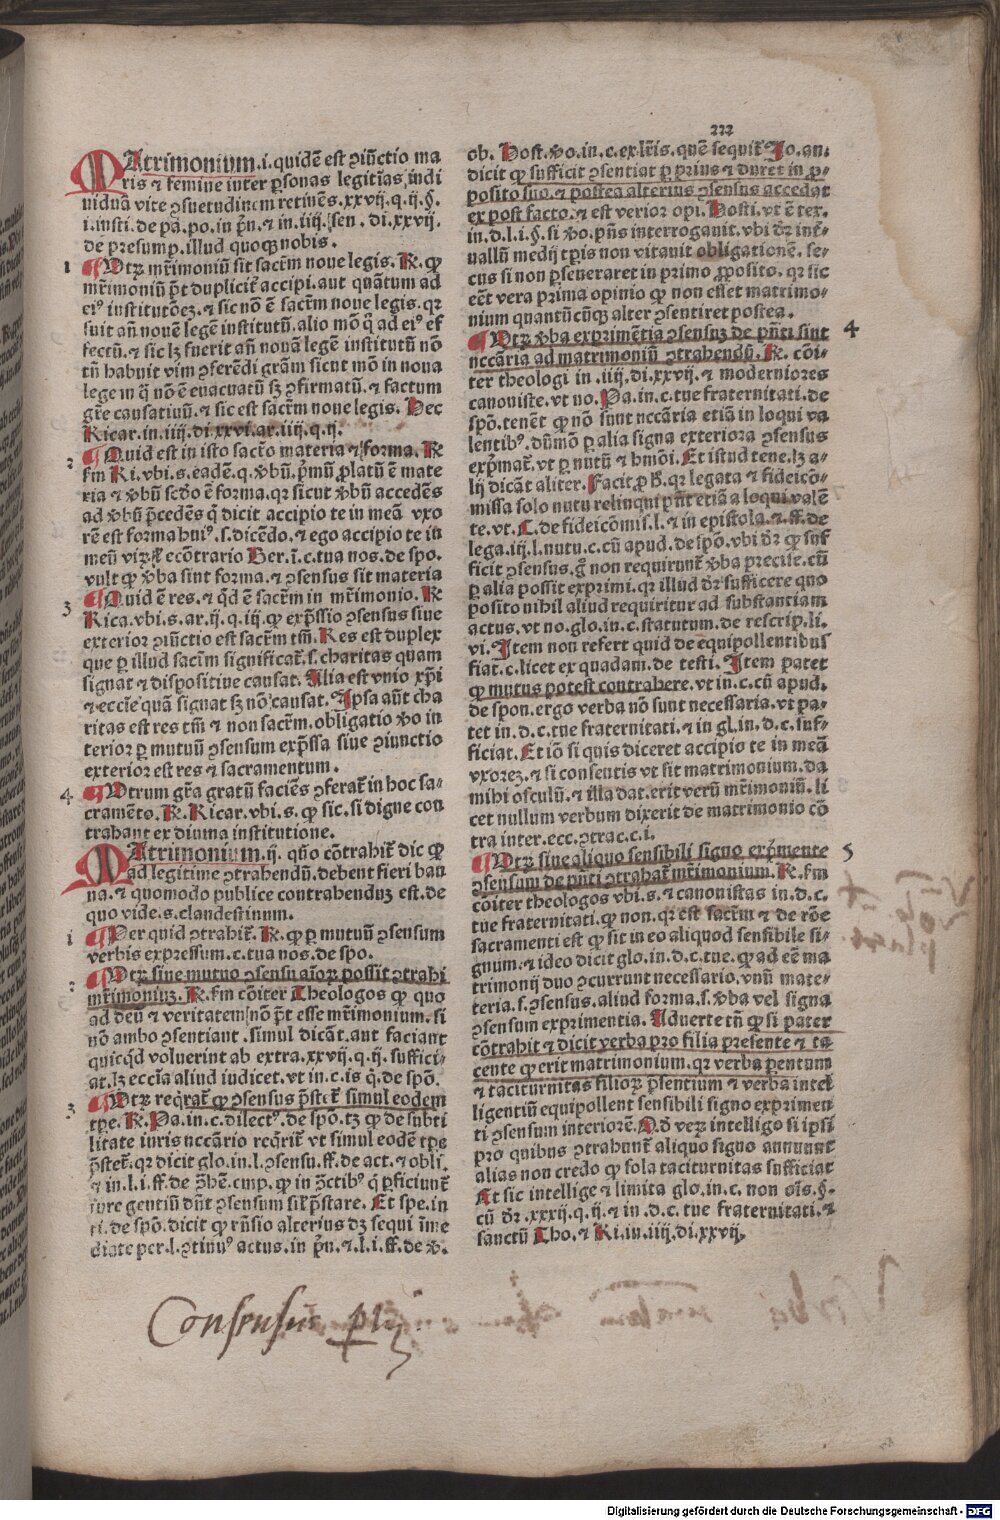 222
MAtrimonium.i. quidē est ꝯiūctio ma
ris ⁊ femine inter ꝑsonas legitīas indi
uiduā vite ꝯsuetudinem retinēs.xxvij.q.ij.§.
i.insti. de pa.po.in prn. ⁊ in.iiij.sen.di.xxvij.
de presump.illud quoqꝫ nobis.
1 ¶ Utrꝫ mr̄imoniū sit sacrm̄ noue legis. R. ꝙ
mr̄imoniū pōt duplicit̄ accipi.aut quātum ad
eiꝰ institutōeꝫ.⁊ sic nō ē sacrm̄ noue legis.qꝛ
fuit añ nouē legē institutū.alio mō q̄ ad eiꝰ ef
fectū.⁊ sic lꝫ fuerit añ nouā legē institutū nō
tñ habuit vim ꝯferēdi gr̄am sicut mō in noua
lege in q̄ nō ē euacuatū sꝫ ꝯfirmatū.⁊ factum
gr̄e causatiuū.⁊ sic est sacrm̄ noue legis. Hec
Ricar.in.iiij.di.xxvi.ar.iiij.q.ij.
2 ¶ Quid est in isto sacr̄o materia ⁊ forma. R.
fm Ri.vbi.s.eadē.q.v̄bū.p̄mū ꝓlatū ē mate
ria ⁊ v̄bū scd̄o ē forma.qꝛ sicut v̄bū accedēs
ad v̄bū p̄cedēs q̄ dicit accipio te in meā vxo
rē est forma huiꝰ.s.dicēdo.⁊ ego accipio te in
meū virꝫ ⁊ ecōtrario Ber.ī.c.tua nos.de spo.
vult ꝙ v̄ba sint forma.⁊ ꝯsensus sit materia
3 ¶ Quid ē res.⁊ qd̄ ē sacrm̄ in mr̄imonio. R.
Rica.vbi.s.ar.ij.q.iij.ꝙ exp̄ssio ꝯsensus siue
exterior ꝯiūctio est sacrm̄ tm̄. Res est duplex
que ꝑ illud sacrm̄ significat̄.s.charitas quam
signat ⁊ dispositiue causat. Alia est vnio xp̄i
⁊ ecclie quā signat sꝫ nō causat. Ipsa aūt cha
ritas est res tm̄ ⁊ non sacrm̄.obligatio v̄o in
terior ꝑ mutuū ꝯsensum exp̄ssa siue ꝯiunctio
exterior est res ⁊ sacramentum.
4 ¶ Utrum gr̄a gratū faciēs ꝯferat̄ in hoc sa-
cramēto. R. Ricar.vbi.s.ꝙ sic.si digne con
trahant ex diuina institutione.
MAtrimonium.ij. quō cōtrahit̄ dic ꝙ
ad legitime ꝯtrahendū.debent fieri ban
na.⁊ quomodo publice contrahenduꝫ est.de
quo vide.s.clandestinum.
1 ¶ Per quid ꝯtrahit̄. R. ꝙ ꝑ mutuū ꝯsensum
verbis expressum.c.tua nos.de spo.
2 ¶ Utrꝫ siue mutuo ꝯsensu aīoꝝ possit ꝯtrahi
mr̄imoniuꝫ. R. fm cōiter Theologos ꝙ quo
ad deū ⁊ veritatem nō pōt esse mr̄imonium.si
nō ambo ꝯsentiant.simul dicāt.aut faciant
quicqd̄ voluerint ab extra.xxvij.q.ij.suffici-
at.lꝫ eccīa aliud iudicet.vt in.c.is q̄.de spō.
3 ¶ Utrꝫ reqrat̄ ꝙ ꝯsensus p̄stet̄ simul eodem
tp̄e. R. Pa.in.c.dilectꝰ.de spō.tꝫ ꝙ de subti
litate iuris nccārio reqrit̄ vt simul eodē tp̄e
p̄stet̄.qꝛ dicit glo.in.l.ꝯsensu.ff.de act.⁊ obli.
⁊ in.l.i.ff.de v̄bē.emp.ꝙ in ꝯtctibꝰ q̄ ꝑficiunt̄
iure gentiū dn̄t ꝯsensum sil̄ p̄stare. Et spe.in
ti.de spō.dicit ꝙ rn̄sio alterius dꝫ sequi īme
diate per.l.ꝯtinuꝰ actus.in prn.⁊.l.i.ff.de v̄.
ob. Host.v̄o.in.c.ex lr̄is.quē sequit̄ Jo.an.
dicit ꝙ sufficit ꝯsentiat ꝑ prius ⁊ duret in ꝓ-
posito suo.⁊ postea alterius ꝯsensus accedat
ex post facto.⁊ est verior opi. Hosti.vt ē tex.
in.d.l.i.§.si v̄o.pn̄s interrogauit.vbi dr̄ inter-
uallū medij tp̄is non vitauit obligationē.se-
cus si non ꝑseueraret in primo ꝓposito.qꝛ sic
eēt vera prima opinio ꝙ non esset matrimo-
nium quantūcūqꝫ alter ꝯsentiret postea.
¶ Utrꝫ v̄ba exprimētia ꝯsensuꝫ de pn̄ti sint 4
nccāria ad matrimoniū ꝯtrahendū. R. cōi-
ter theologi in .iiij.di.xxvij.⁊ moderniores
canoniste.vt no. Pa.in.c.tue fraternitati.de
spō.tenēt ꝙ nō sunt nccāria etiā in loqui va
lentibꝰ.dūmō ꝑ alia signa exteriora ꝯsensus
exp̄mat̄.vt ꝑ nutū ⁊ hmōi. Et istud tene.lꝫ a-
lij dicāt aliter. Facit ꝓ B.qꝛ legata ⁊ fideicō-
missa solo nutu relinqui pn̄t etiā a loqui valē
te.vt. C. de fideicōmis.l.⁊ in epistola.⁊.ff.de
lega.iij.l.nutu.c.cū apud.de spō.vbi dr̄ ꝙ suf
ficit ꝯsensus.g° non requirunt̄ v̄ba precise.cū
ꝑ alia possit exprimi.qꝛ illud dr̄ sufficere quo
posito nihil aliud requiritur ad substantiam
actus.vt no.glo.in.c.statutum.de rescrip.li.
vi. Item non refert quid de equipollentibus
fiat.c.licet ex quadam.de testi. Item patet
ꝙ mutus potest contrahere.vt in.c.cū apud.
de spon.ergo verba nō sunt necessaria.vt pa-
tet in.d.c.tue fraternitati.⁊ in gl.in.d.c.suf-
ficiat. Et iō si quis diceret accipio te in meā
vxoreꝫ.⁊ si consentis vt sit matrimonium.da
mihi osculū.⁊ illa dat.erit verū mr̄imoniū.li
cet nullum verbum dixerit de matrimonio cō
tra inter.ecc.ꝯtrac.c.i.
¶ Utrꝫ siue aliquo sensibili signo exp̄mente 5
ꝯsensum de pn̄ti ꝯtrahat̄ mr̄imonium. R. fm
cōiter theologos vbi.s.⁊ canonistas in.d.c.
tue fraternitati.ꝙ non.qꝛ est sacrm̄ ⁊ de rōe
sacramenti est ꝙ sit in eo aliquod sensibile si-
gnum.⁊ ideo dicit glo.in.d.c.tue.ꝙ ad eē ma
trimonij duo ꝯcurrunt necessario.vnū mate-
teria.s.ꝯsensus.aliud forma.s.v̄ba vel signa
ꝯsensum exprimentia. Aduerte tñ ꝙ si pater
cōtrahit ⁊ dicit verba pro filia presente ⁊ ta
cente ꝙ erit matrimonium.qꝛ verba ꝑentum
⁊ taciturnitas filioꝝ p̄sentium ⁊ verba intel
ligentiū equipollent sensibili signo exprimen
ti ꝯsensum interiorē. Qd̄ verꝫ intelligo si ipsi
pro quibus ꝯtrahunt̄ aliquo signo annuunt
alias non credo ꝙ sola taciturnitas sufficiat
Et sic intellige ⁊ limita glo.in.c. non oīs.§.
cū dr̄.xxxij.q.ij.⁊ in .d.c.tue fraternitati.⁊
sanctū Tho.⁊ Ri.in.iiij.di.xxvij.
Consensus
Digitalisierung gefördert durch die Deutsche Forschungsgemeinschaft - DFG